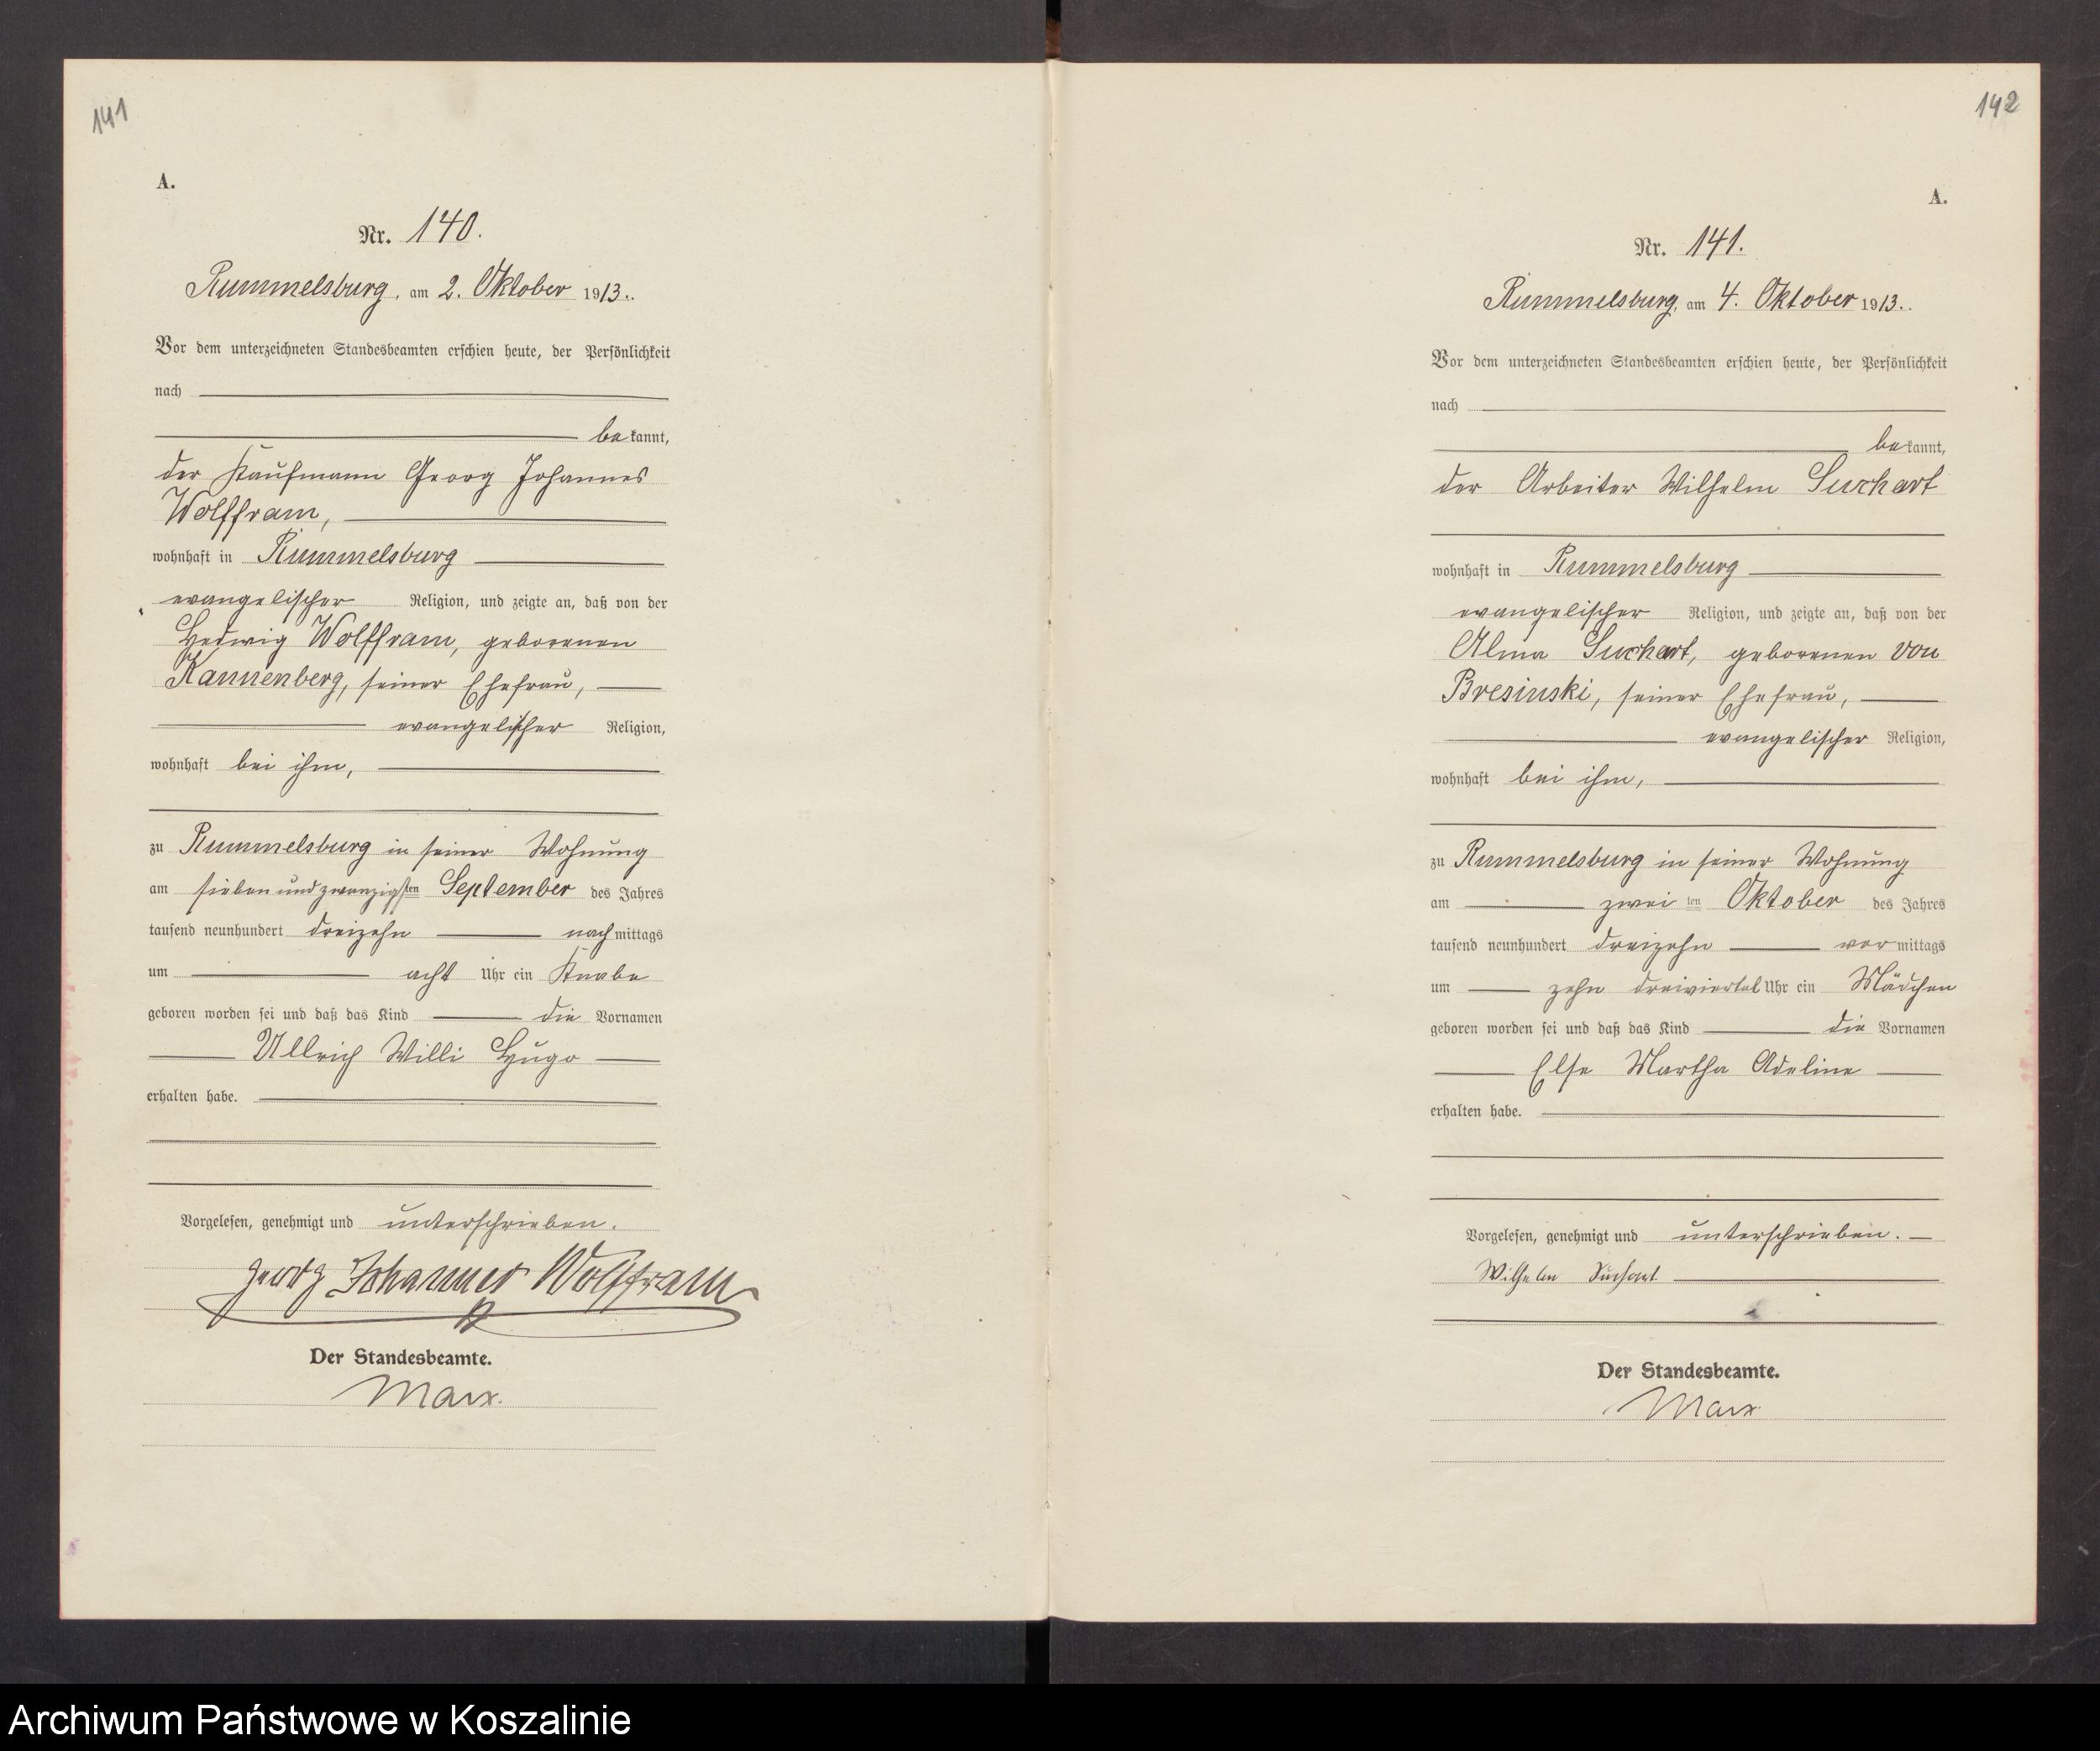 141
A.
Nr. 140.
Rummelsburg, am 2. Oktober 1913..
Vor dem unterzeichneten Standesbeamten erschien heute, der Persönlichkeit
nach
bekannt,
der Kaufmann Georg Johannes
Wolffram,
wohnhaft in Rummelsburg
evangelischer Religion, und zeigte an, daß von der
Hedwig Wolffram, geborenen
Kannenberg, seiner Ehefrau,
evangelischer Religion,
wohnhaft bei ihm,
zu Rummelsburg in seiner Wohnung
am siebenundzwanzigsten September des Jahres
tausend neunhundert dreizehn nachmittags
um acht Uhr ein Knabe
geboren worden sei und daß das Kind die Vornamen
Ullrich Willi Hugo
erhalten habe.
Vorgelesen, genehmigt und unterschrieben.
Georg Johannes Wolffram
Der Standesbeamte.
Marx.
142
A.
Nr. 141.
Rummelsburg, am 4. Oktober 1913..
Vor dem unterzeichneten Standesbeamten erschien heute, der Persönlichkeit
nach
bekannt,
der Arbeiter Wilhelm Suchart
wohnhaft in Rummelsburg
evangelischer Religion, und zeigte an, daß von der
Alma Suchart, geborenen von
Bresinski, seiner Ehefrau,
evangelischer Religion,
wohnhaft bei ihm,
zu Rummelsburg in seiner Wohnung
am zweiten Oktober des Jahres
tausend neunhundert dreizehn vormittags
um zehn dreiviertel Uhr ein Mädchen
geboren worden sei und daß das Kind die Vornamen
Else Martha Adeline
erhalten habe.
Vorgelesen, genehmigt und unterschrieben.
Wilhelm Suchart
Der Standesbeamte.
Marx
Archiwum Państwowe w Koszalinie